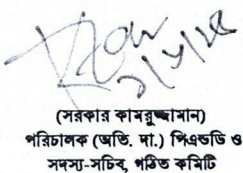 (সরকার কামরুজ্জামান)
পরিচালক (অতি. দা.) পিএন্ডডি ও
সদস্য-সচিব, গঠিত কমিটি